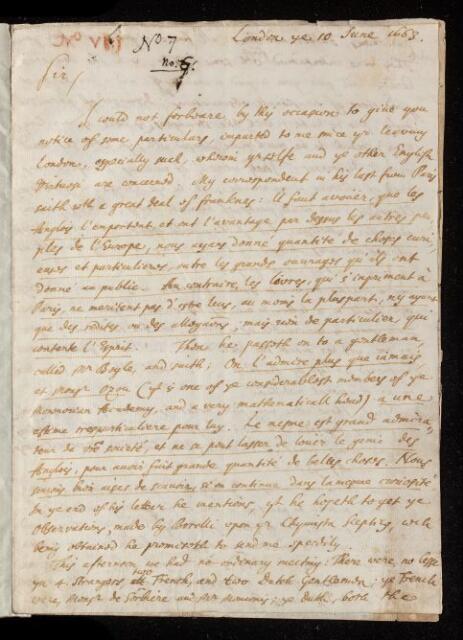 London ye 10 June 1663.
No. 7
no. 6.
Sir,
I could not forbeare by this occasion to give you
notice of some particulars, imparted to me since yr leaving
London, especially such, wherein yrselfe and ye other English
Virtuosi are concerned. My correspondent in his last from Paris
saith wth a great deal of franknes: il faut avoüer, que les
Anglois l'emportent, et ont l'avantage par dessus les autres peu-
ples de l'Europe, nous ayans donné quantité de choses curi-
euses et particulieres, outre les grands ouvrages qu'ils ont
donné au public. Au contraire, les livres, qui s'impriment à
Paris, ne meritent pas d'estre leus, au moins la pluspart, n'y ayant
que des redites, ou des allegaons, mais rien de particulier qui
contente l'Esprit. Then he passeth on to a gentleman,
called Mr Boyle, and saith; On l'admire plus que iamais
et Monsr Ozou (yt is one of ye considerablest members of ye
Monmorian Academy, and a very mathematicall head) a une
estime tresparticuliere pour luy. Le mesme est grand admira-
teur de vre societé, et ne se peut lasser de louer le genie des
Anglois, pour avoir fait grande quantité de belles choses. Nous
serions bien aises de scavoir, si on continue dans la mesme curiosité
In ye end of his letter he mentions, yt he hopeth to get ye
observations, made by Borelli upon yr Chymista Scepticq, wch
being obtained he promiseth to send me speedily.
This afternoon we had no ordinary meeting: There were no lesse
yn 4 strangers, two French, and two Dutch Gentlemen; ye French
were, Monsr de Sorbiere and Mr Monconis; ye Dutch, both the